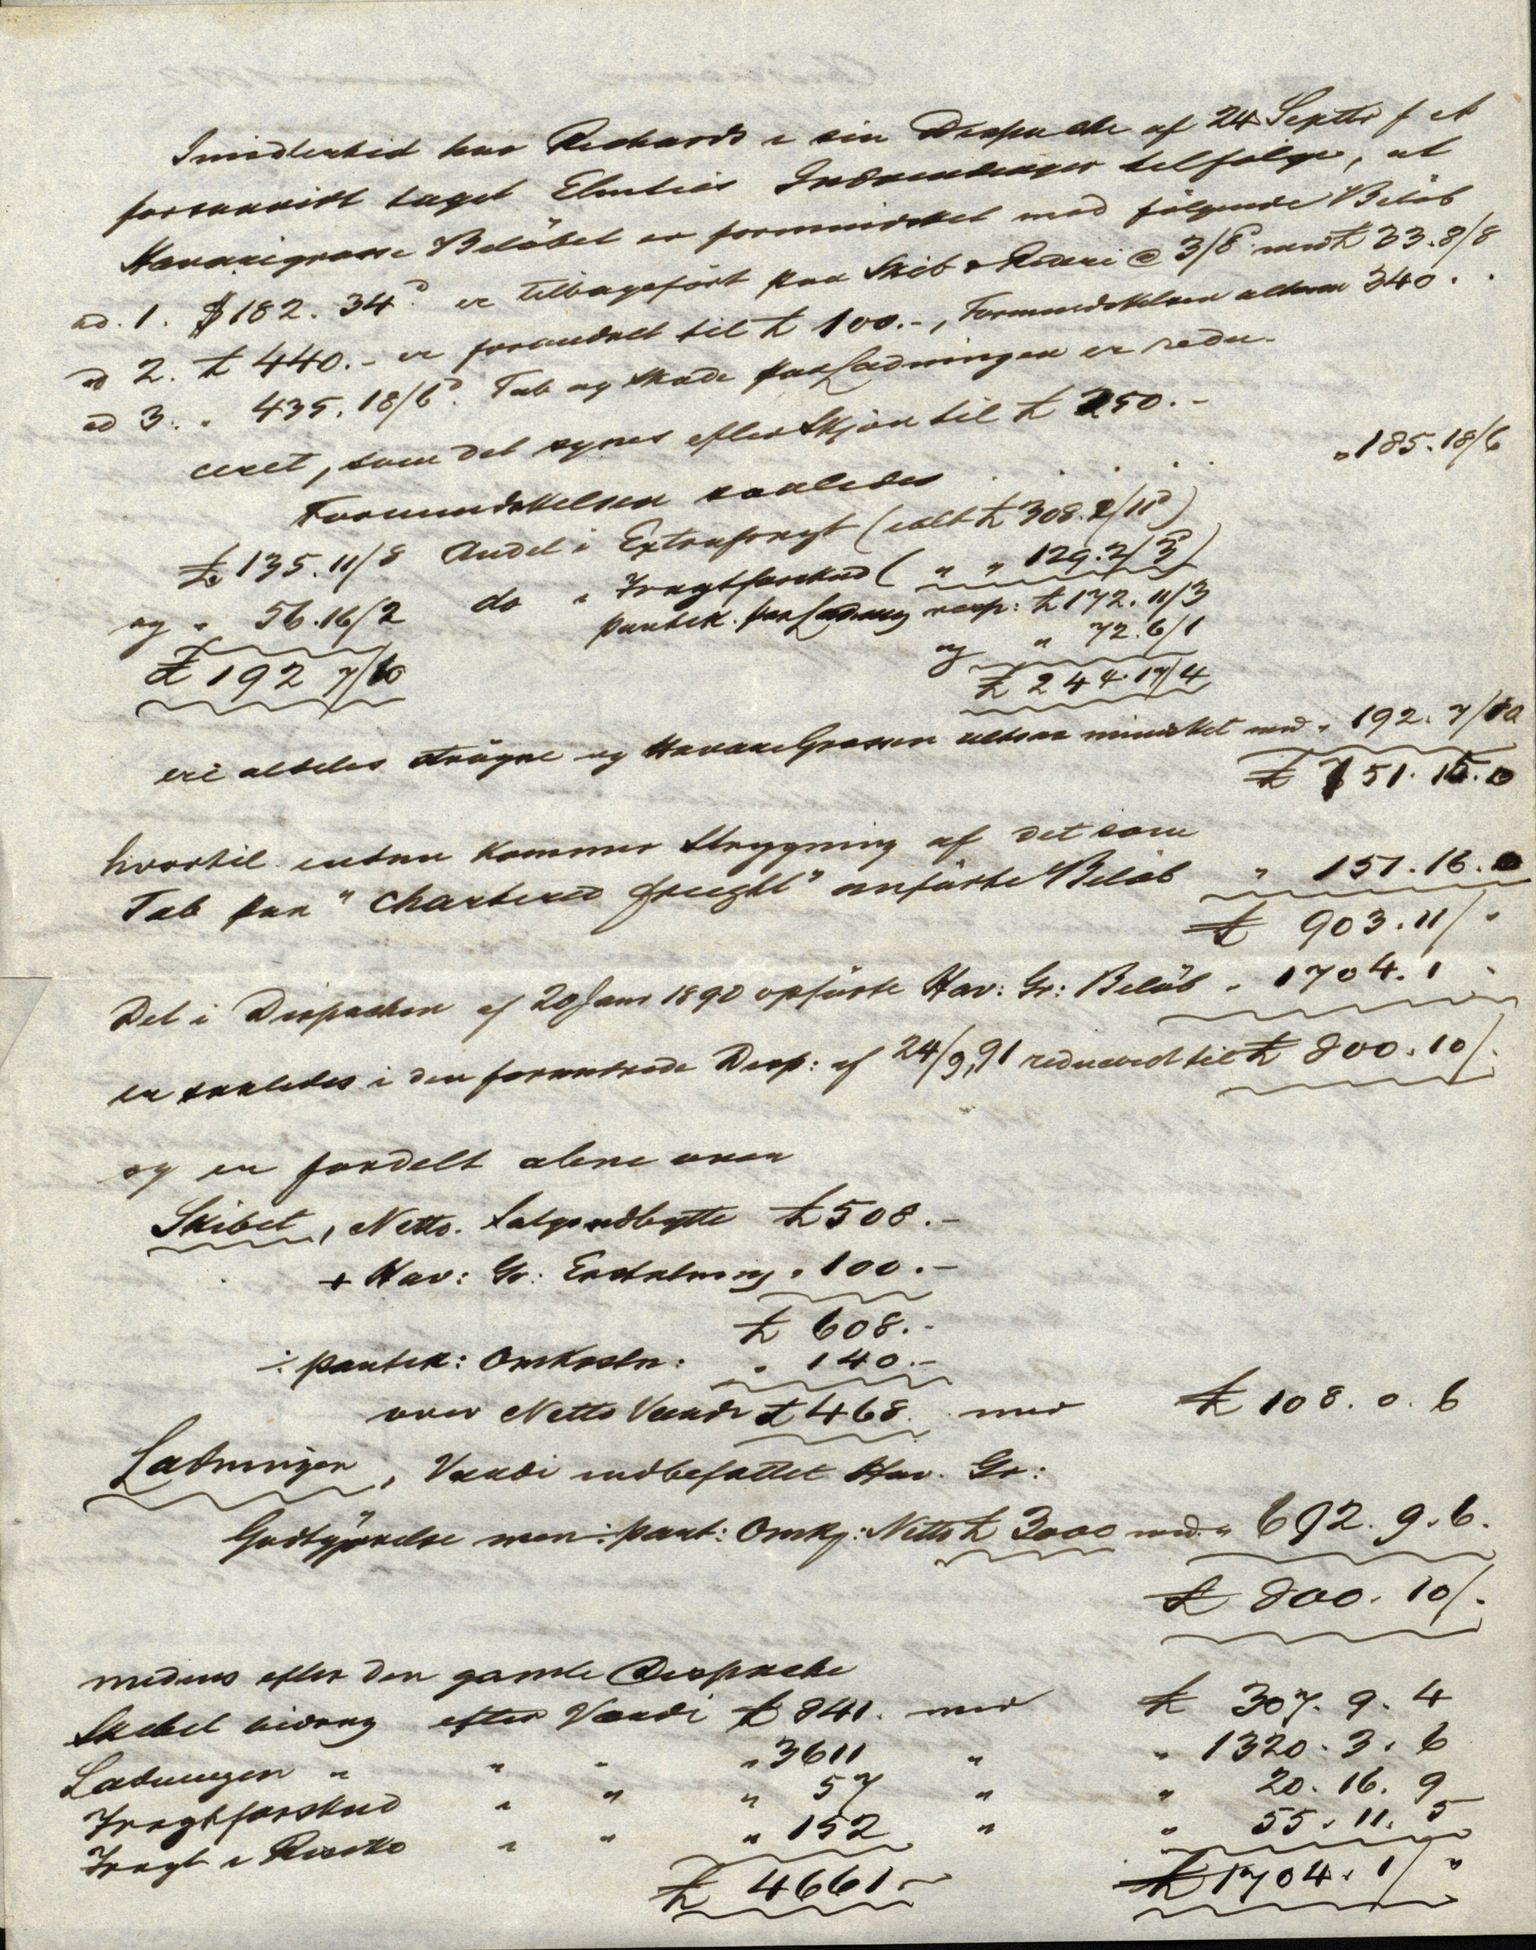 Imidlertid har Richards i sin Dispache af 24 Septbr f A
forsaavidt taget Elmslies Indvendinger tilfølge, at
Havarigrosse Beløbet er formindsket med følgende Beløb
ad. 1. $182. 34 er tilbageført paa Skib & Rederi @ 3/8 med £ 33. 8/8
ad 2. £ 440.- er forandret til £ 100.-, Formindskelsen altsaa 340. .
ad 3. " 435. 18/6 Tab og Skade paa Ladningen er redu-
ceret, som det synes efter Skjøn til £ 250.- " 185. 18/6
Formindskelsen saaledes
£ 135. 11/8 Andel i Extrafragt (ialt £ 308. 2/11)
og " 56. 16/2 do " Fragtforskud ( " " 129. 2/3)
£ 192 7/10 partik. paa Ladning resp: £ 172. 11/3
og " 72. 6/1
£ 244. 17/4
ere aldeles strøgne og Havari Grossen altsaa mindsket med " 192. 7/10
£ 751. 15. 0
hvortil endnu kommer Strygning af det som
Tab paa "Chartered freight" anførte Beløb " 151. 16. 0
£ 903. 11/ "
Det i Dispachen af 20 Jan 1890 opførte Hav: Gr: Beløb " 1704. 1 "
er saaledes i den forandrede Disp: af 24/9, 91 reduceret til £ 800. 10/.
og er fordelt alene over
Skibet, Netto. Salgsudbytte £ 508.-
+ Hav: Gr: Erstatning " 100.-
£ 608.-
÷ partik: Omkostn: " 140.-
over Netto Værdi £ 468. med £ 108. 0. 6
Ladningen, Værdi indbefattet Hav. Gr:
Godtgjørelse men ÷ part: Omkg: Netto £ 3000 med " 692. 9. 6.
£ 800. 10/.
medens efter den gamle Dispache
Skibet bidrog efter Værdi £ 841. med £ 307. 9. 4
Ladningen " " " " 3611 " " 1320. 3. 6
Fragtforskud " " " 57 " " 20. 16. 9
Fragt i Risiko " " " 152 " " 55. 11. 5
£ 4661- £ 1704. 1/ "